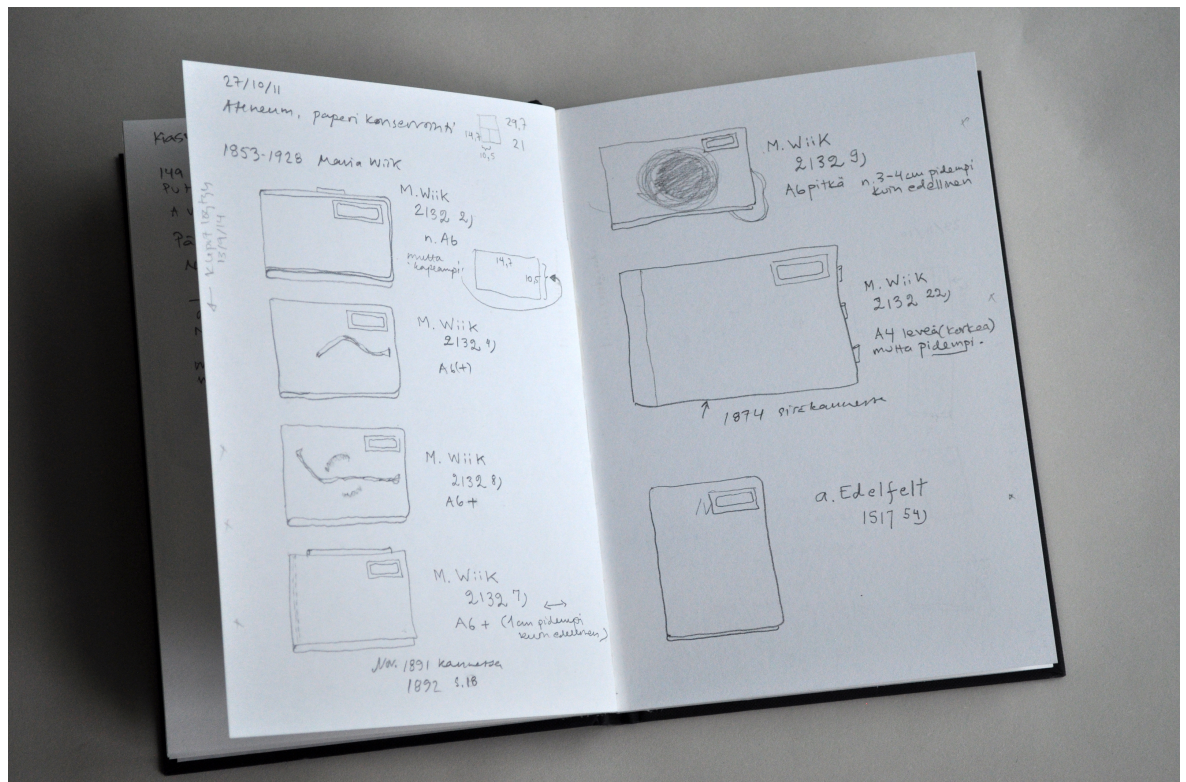 27/10/11
Ateneum, paperi konservointi
29,7
14,7
21
10,5
1853-1928 Maria Wiik
M. Wiik
2132 2)
n. A6
mutta
kapeampi
14,7
10,5
M. Wiik
2132 4)
A6(+)
M. Wiik
2132 8)
A6+
M. Wiik
2132 7)
A6 + (1cm pidempi
kuin edellinen)
Nov. 1891 kannessa
1892 s.18
13/9/14
Kias
149
M. Wiik
2132 9)
A6 pitkä n. 3-4cm pidempi
kuin edellinen
M. Wiik
2132 22)
A4 leveä (korkea)
mutta pidempi.
1874
a. Edelfelt
1517 54)